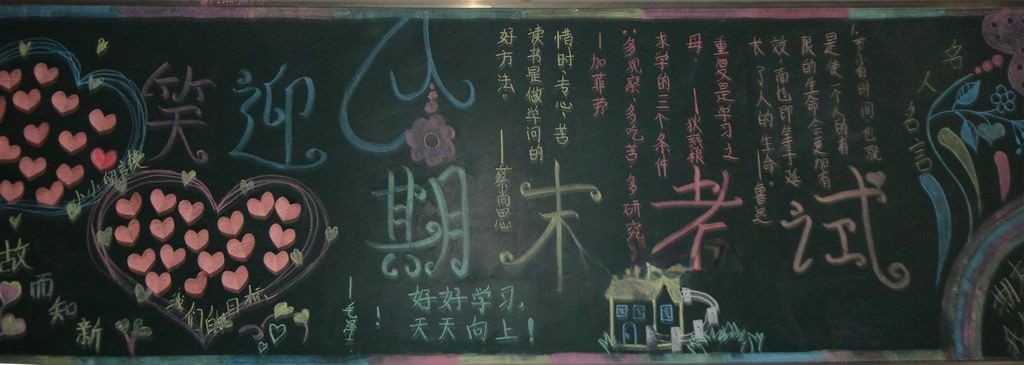 笑迎
期末考试
名人名言
节省时间，也就
是使一个人的有
限的生命，更加有
效，而也即等于延
长了人的生命。——鲁迅
重复是学习之
母。——狄慈根
求学的三个条件
：多观察、多吃苦、多研究
——加菲劳
惜时、专心、苦
读书是做学问的
好方法。——蔡尚思
好好学习，
天天向上！
——毛泽
故而知新
我们的目标